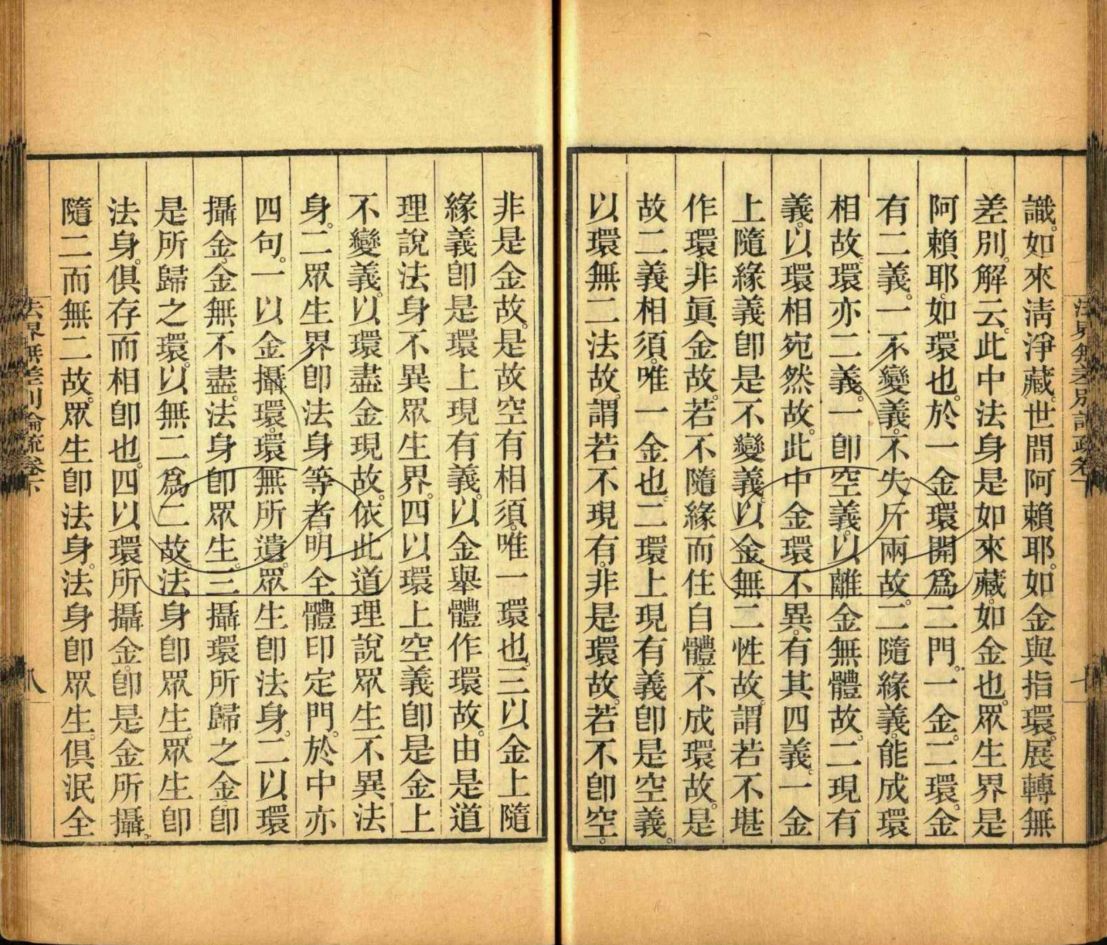 識。如來清淨藏。世間阿賴耶。如金與指環。展轉無
差別。解云。此中法身是如來藏。如金也。眾生界是
阿賴耶。如環也。於一金環開爲二門。一金。二環。金
有二義。一不變義。不失斤兩故。二隨緣義。能成環
相故。環亦二義。一卽空義。以離金無體故。二現有
義。以環相宛然故。此中金環不異。有其四義。一金
上隨緣義卽是不變義。以金無二性故。謂若不堪
作環。非眞金故。若不隨緣而住自體。不成環故。是
故二義相須。唯一金也。二環上現有義卽是空義。
以環無二法故。謂若不現有。非是環故。若不卽空。
非是金故。是故空有相須。唯一環也。三以金上隨
緣義卽是環上現有義。以金舉體作環故。由是道
理說法身不異眾生界。四以環上空義卽是金上
不變義。以環盡金現故。依此道理說眾生不異法
身。二眾生界卽法身等者。明全體印定門。於中亦
四句。一以金攝環。環無所遺。眾生卽法身。二以環
攝金。金無不盡。法身卽眾生。三攝環所歸之金。卽
是所歸之環。以無二爲二故。法身卽眾生。眾生卽
法身。俱存而相卽也。四以環所攝金。卽是金所攝。
隨二而無二故。眾生卽法身。法身卽眾生。俱泯全
法界無差別論疏卷下
八